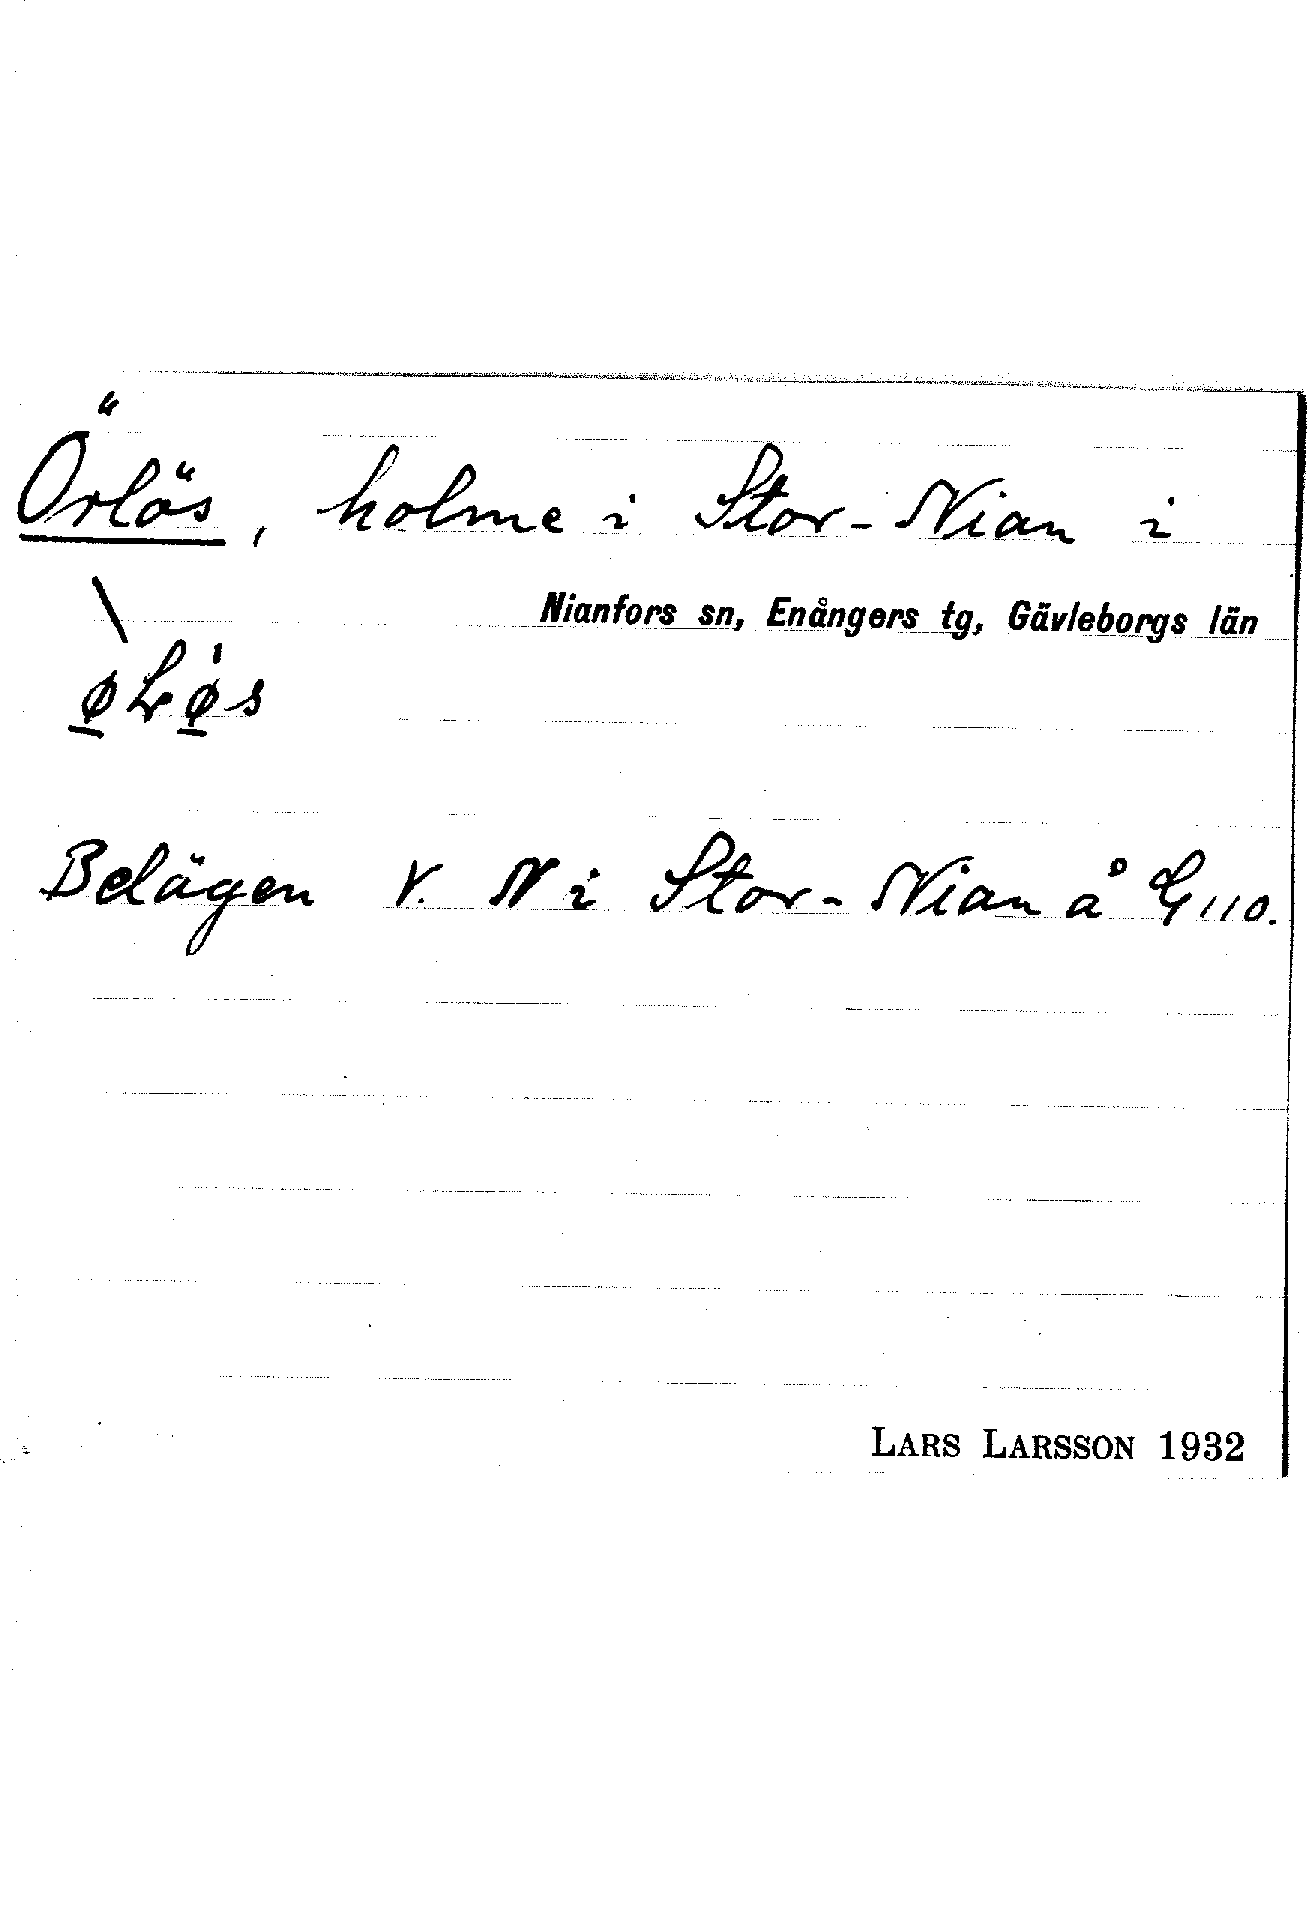 Örlös, holme i Stor-Nian i
Nianfors sn, Enångers tg, Gävleborgs län
Belägen V. N i Stor-Nian å G 110.
LARS LARSSON 1932